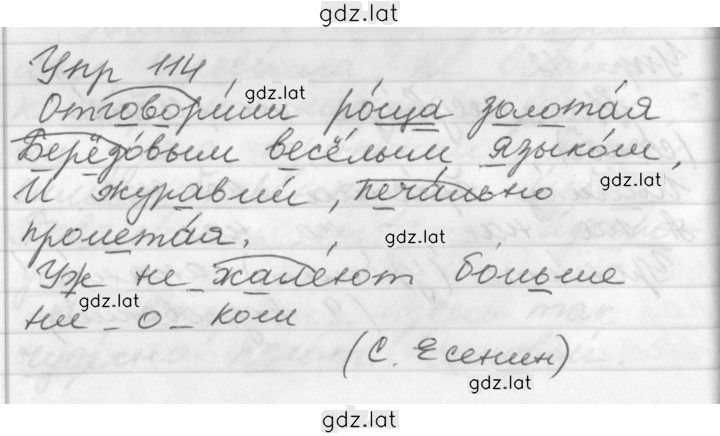 gdz.lat
Упр 114
gdz.lat
Отговори́ла ро́ща золота́я
Берёзо́вым весё́лым языко́м,
gdz.lat
И журавли́, печа́льно
пролета́я,
gdz.lat
Уж не жале́ют бо́льше
gdz.lat
ни о ком
(С. Есенин)
gdz.lat
gdz.lat